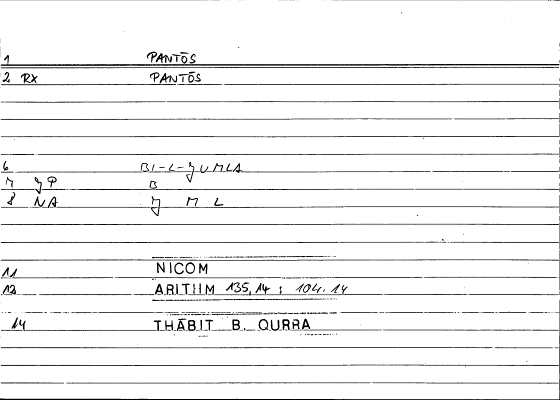 1 PANTŌS
2 RX PANTŌS
6 BI-L-ȝUMLA
7 ȝP B
8 NA ȝ M L
11 NICOM
12 ARITHM 135,14 ; 104.14
14 THĀBIT B. QURRA